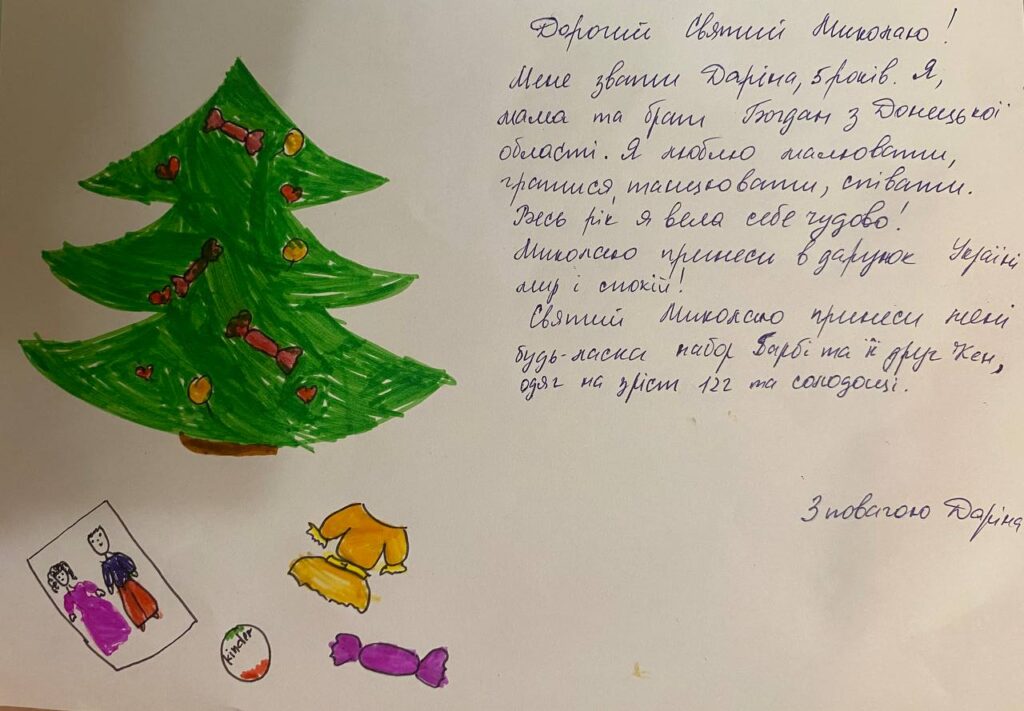 Дорогий Святий Миколаю!
Мене звати Даріна, 5 років. Я,
мама та брат Богдан з Донецької
області. Я люблю малювати,
гратися, танцювати, співати.
Весь рік я вела себе чудово!
Миколаю принеси в дарунок Україні
мир і спокій!
Святий Миколаю принеси мені
будь-ласка набор Барбі та її друг Кен,
одяг на зріст 122 та солодощі.
З повагою Даріна
kinder